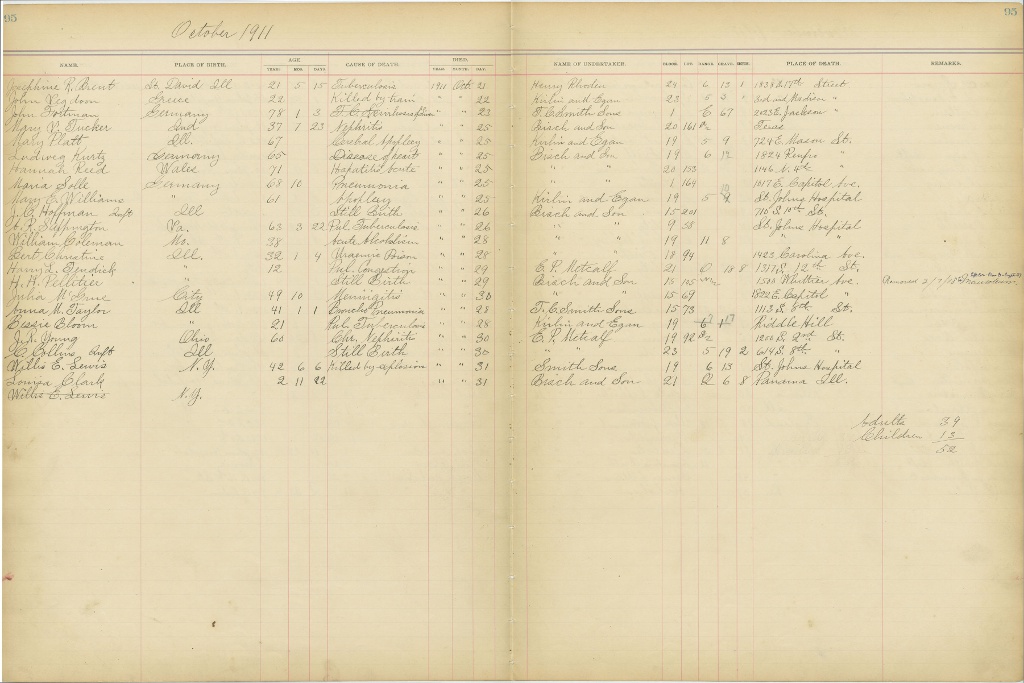 95
October 1911
95
NAME. PLACE OF BIRTH. AGE YEARS MOS. DAYS CAUSE OF DEATH. DIED. YEAR. MONTH. DAY. NAME OF UNDERTAKER. BLOCK. LOT. RANGE. GRAVE. SECN. PLACE OF DEATH. REMARKS.
Josephine R. Brent St. David Ill 21 5 15 Tuberculosis 1911 Oct. 21 Henry Rhoden 24 6 13 1 1938 S 17th Street
John 22 Killed by train " " 22 Kirlin and Egan 23 5 3 " 3rd and Madison "
John Fortman Germany 78 1 3 " " 23 F. C. Smith Sons 1 6 67 2023 E. Jackson "
Mary V. Tucker Ind 37 1 23 Nephritis " " 25 Brisch and Son 20 161 Texas
Mary Platt Ill. 67 Cerebral Apoplexy " " 25 Kirlin and Egan 19 5 9 724 E. Mason St.
Ludwig Kurtz Germany 65 Disease of heart " " 25 Brisch and Son 19 6 12 1824 Renfro "
Hannah Reed Wales 71 Hepatitis Acute " " 25 " " 20 153 1146 N. 4th "
Maria Solle Germany 68 10 Pneumonia " " 25 " " 1 164 1017 E. Capitol Ave.
Mary E. Williams " 61 Apoplexy " " 25 Kirlin and Egan 19 5 St. Johns Hospital
J. C. Hoffman Inft Ill Still Birth " " 26 Brisch and Son 15 201 710 S. 10th St.
Va. 63 3 22 Pul. Tuberculosis " " 26 " " 9 58 St. Johns Hospital
William Coleman Mo. 38 Acute Alcoholism " " 28 " " 19 11 8 " "
Bert Christine Ill. 32 1 4 Uraemic Poison " " 28 " " 18 94 1423 Carolina Ave.
Dendick " 12 Pul. Congestion " " 29 E. P. Metcalf 21 13 8 1317 S. 12th St.
H. H. Pelletier Still Birth " " 29 Brisch and Son 15 105 1500 Whittier Ave. Removed
Julia McCrue City 49 10 Meningitis " " 30 " " 15 69 1522 E. Capitol "
Anna M. Taylor Ill 41 1 1 Broncho Pneumonia " " 28 F. C. Smith Sons 15 73 1113 S. 8th St.
Bessie Bloom " 21 Pul. Tuberculosis " " 28 Kirlin and Egan 19 Riddle Hill
J. N. Young Ohio 60 Chr. Nephritis " " 30 E. P. Metcalf 19 92 1200 S. 2nd St.
Collins Inft Ill Still Birth " " 30 " " 23 5 19 2 614 S. 8th. "
Willis E. Lewis N. Y. 42 6 6 Killed by explosion " " 31 Smith Sons 19 6 13 St. Johns Hospital
Louisa Clark 2 11 22 " " 31 Brisch and Son 21 6 8 Panama Ill.
Willis E. Lewis N. Y.
Adults 39
Children 13
52